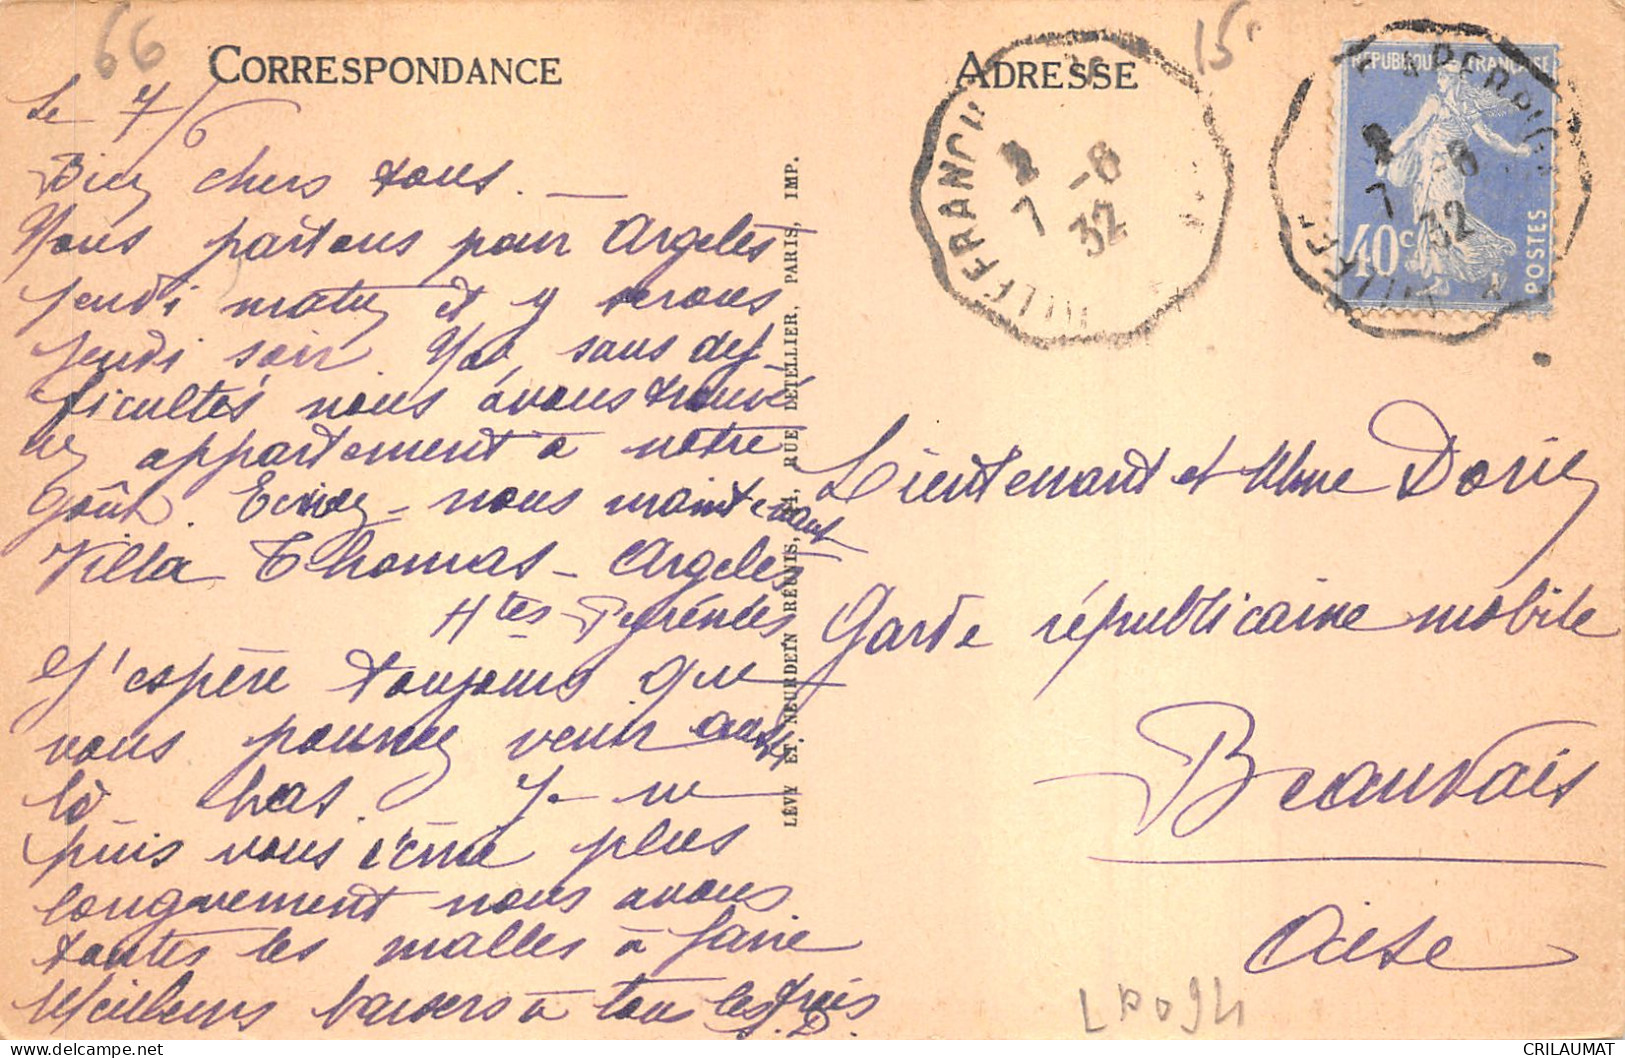 66
CORRESPONDANCE
Le 7/6
Bien chers tous. —
Nous partons pour Argelès
jeudi matin et y serons
jeudi soir. sans dif-
ficultés nous avons trouvé
un appartement à notre
goût. Ecrivez-nous maintenant
Villa Thomas - Argelès
Htes Pyrénées
J'espère toujours que
vous pourrez venir aussi
là bas. Je ne
puis vous écrire plus
longuement nous avons
toutes les malles à faire
Meilleurs baisers à tous les trois
LÉVY ET NEURDEIN RÉUNIS, 44, RUE LETELLIER, PARIS, IMP.
ADRESSE
15
VILLEFRANCH
7 -6
32
RÉPUBLIQUE FRANÇAISE
40c
POSTES
7 -6
32
Lieutenant et Mme Dorin
Garde républicaine mobile
Beauvais
Oise
CRILAUMAT